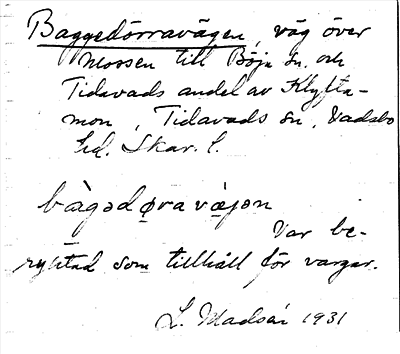 Baggedörravägen, väg över
mossen till Böja sn. och
Tidavads andel av Klyfta-
mon, Tidavads sn, Vadsbo
hd. Skar. l.
bàgədø̨ravä̀jən
Var be-
ryktad som tillhåll för vargar.
L. Madsén 1931